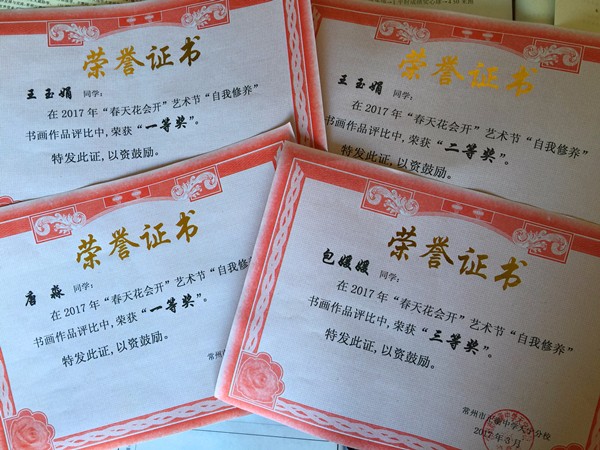 荣誉证书
王玉娟 同学:
在2017年“春天花会开”艺术节“自我修养”
书画作品评比中,荣获“一等奖”。
特发此证,以资鼓励。
荣誉证书
王玉娟 同学:
在2017年“春天花会开”艺术节“自我修养”
书画作品评比中,荣获“二等奖”。
特发此证,以资鼓励。
荣誉证书
唐淼 同学:
在2017年“春天花会开”艺术节“自我修养”
书画作品评比中,荣获“一等奖”。
特发此证,以资鼓励。
常州市
荣誉证书
包媛媛 同学:
在2017年“春天花会开”艺术节“自我修养”
书画作品评比中,荣获“三等奖”。
特发此证,以资鼓励。
常州市 中学天宁分校
2017年3月